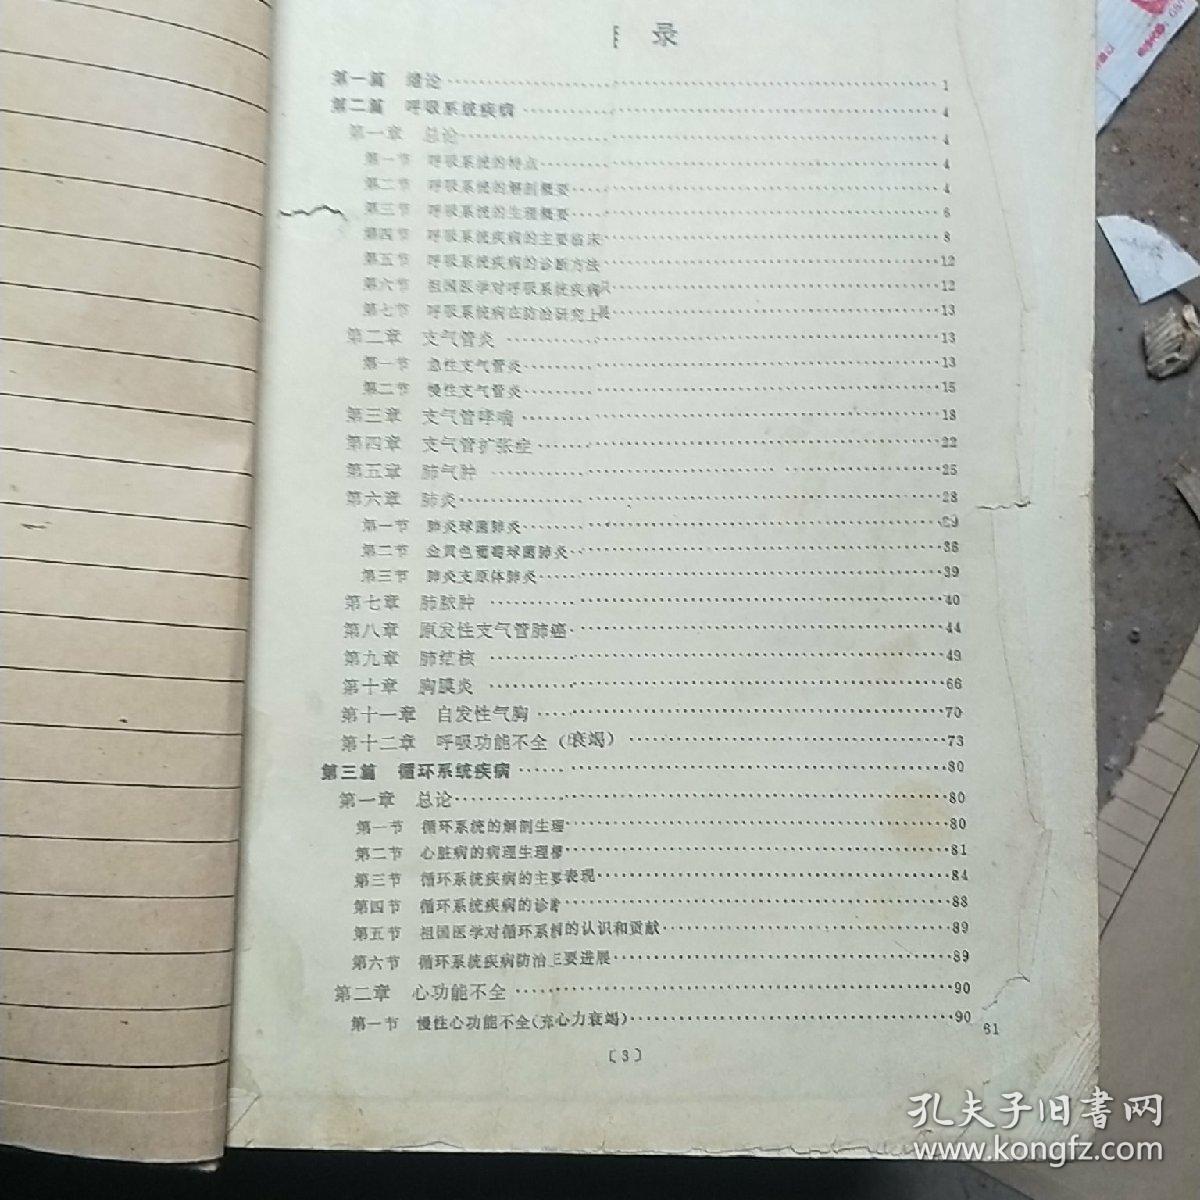 录
第一篇 绪论 1
第二篇 呼吸系统疾病 4
第一章 总论 4
第一节 呼吸系统的特点 4
第二节 呼吸系统的解剖概要 4
第三节 呼吸系统的生理概要 6
第四节 呼吸系统疾病的主要临床 8
第五节 呼吸系统疾病的诊断方法 12
第六节 祖国医学对呼吸系统疾病 12
第七节 呼吸系统病在防治研究上 13
第二章 支气管炎 13
第一节 急性支气管炎 13
第二节 慢性支气管炎 15
第三章 支气管哮喘 18
第四章 支气管扩张症 22
第五章 肺气肿 25
第六章 肺炎 28
第一节 肺炎球菌肺炎 29
第二节 金黄色葡萄球菌肺炎 38
第三节 肺炎支原体肺炎 39
第七章 肺脓肿 40
第八章 原发性支气管肺癌 44
第九章 肺结核 49
第十章 胸膜炎 66
第十一章 自发性气胸 70
第十二章 呼吸功能不全(衰竭) 73
第三篇 循环系统疾病 80
第一章 总论 80
第一节 循环系统的解剖生理 80
第二节 心脏病的病理生理 81
第三节 循环系统疾病的主要表现 84
第四节 循环系统疾病的诊 88
第五节 祖国医学对循环系 的认识和贡献 89
第六节 循环系统疾病防治主要进展 89
第二章 心功能不全 90
第一节 慢性心功能不全(充 心力衰竭) 90
61
〔3〕
孔夫子旧书网
www.kongfz.com